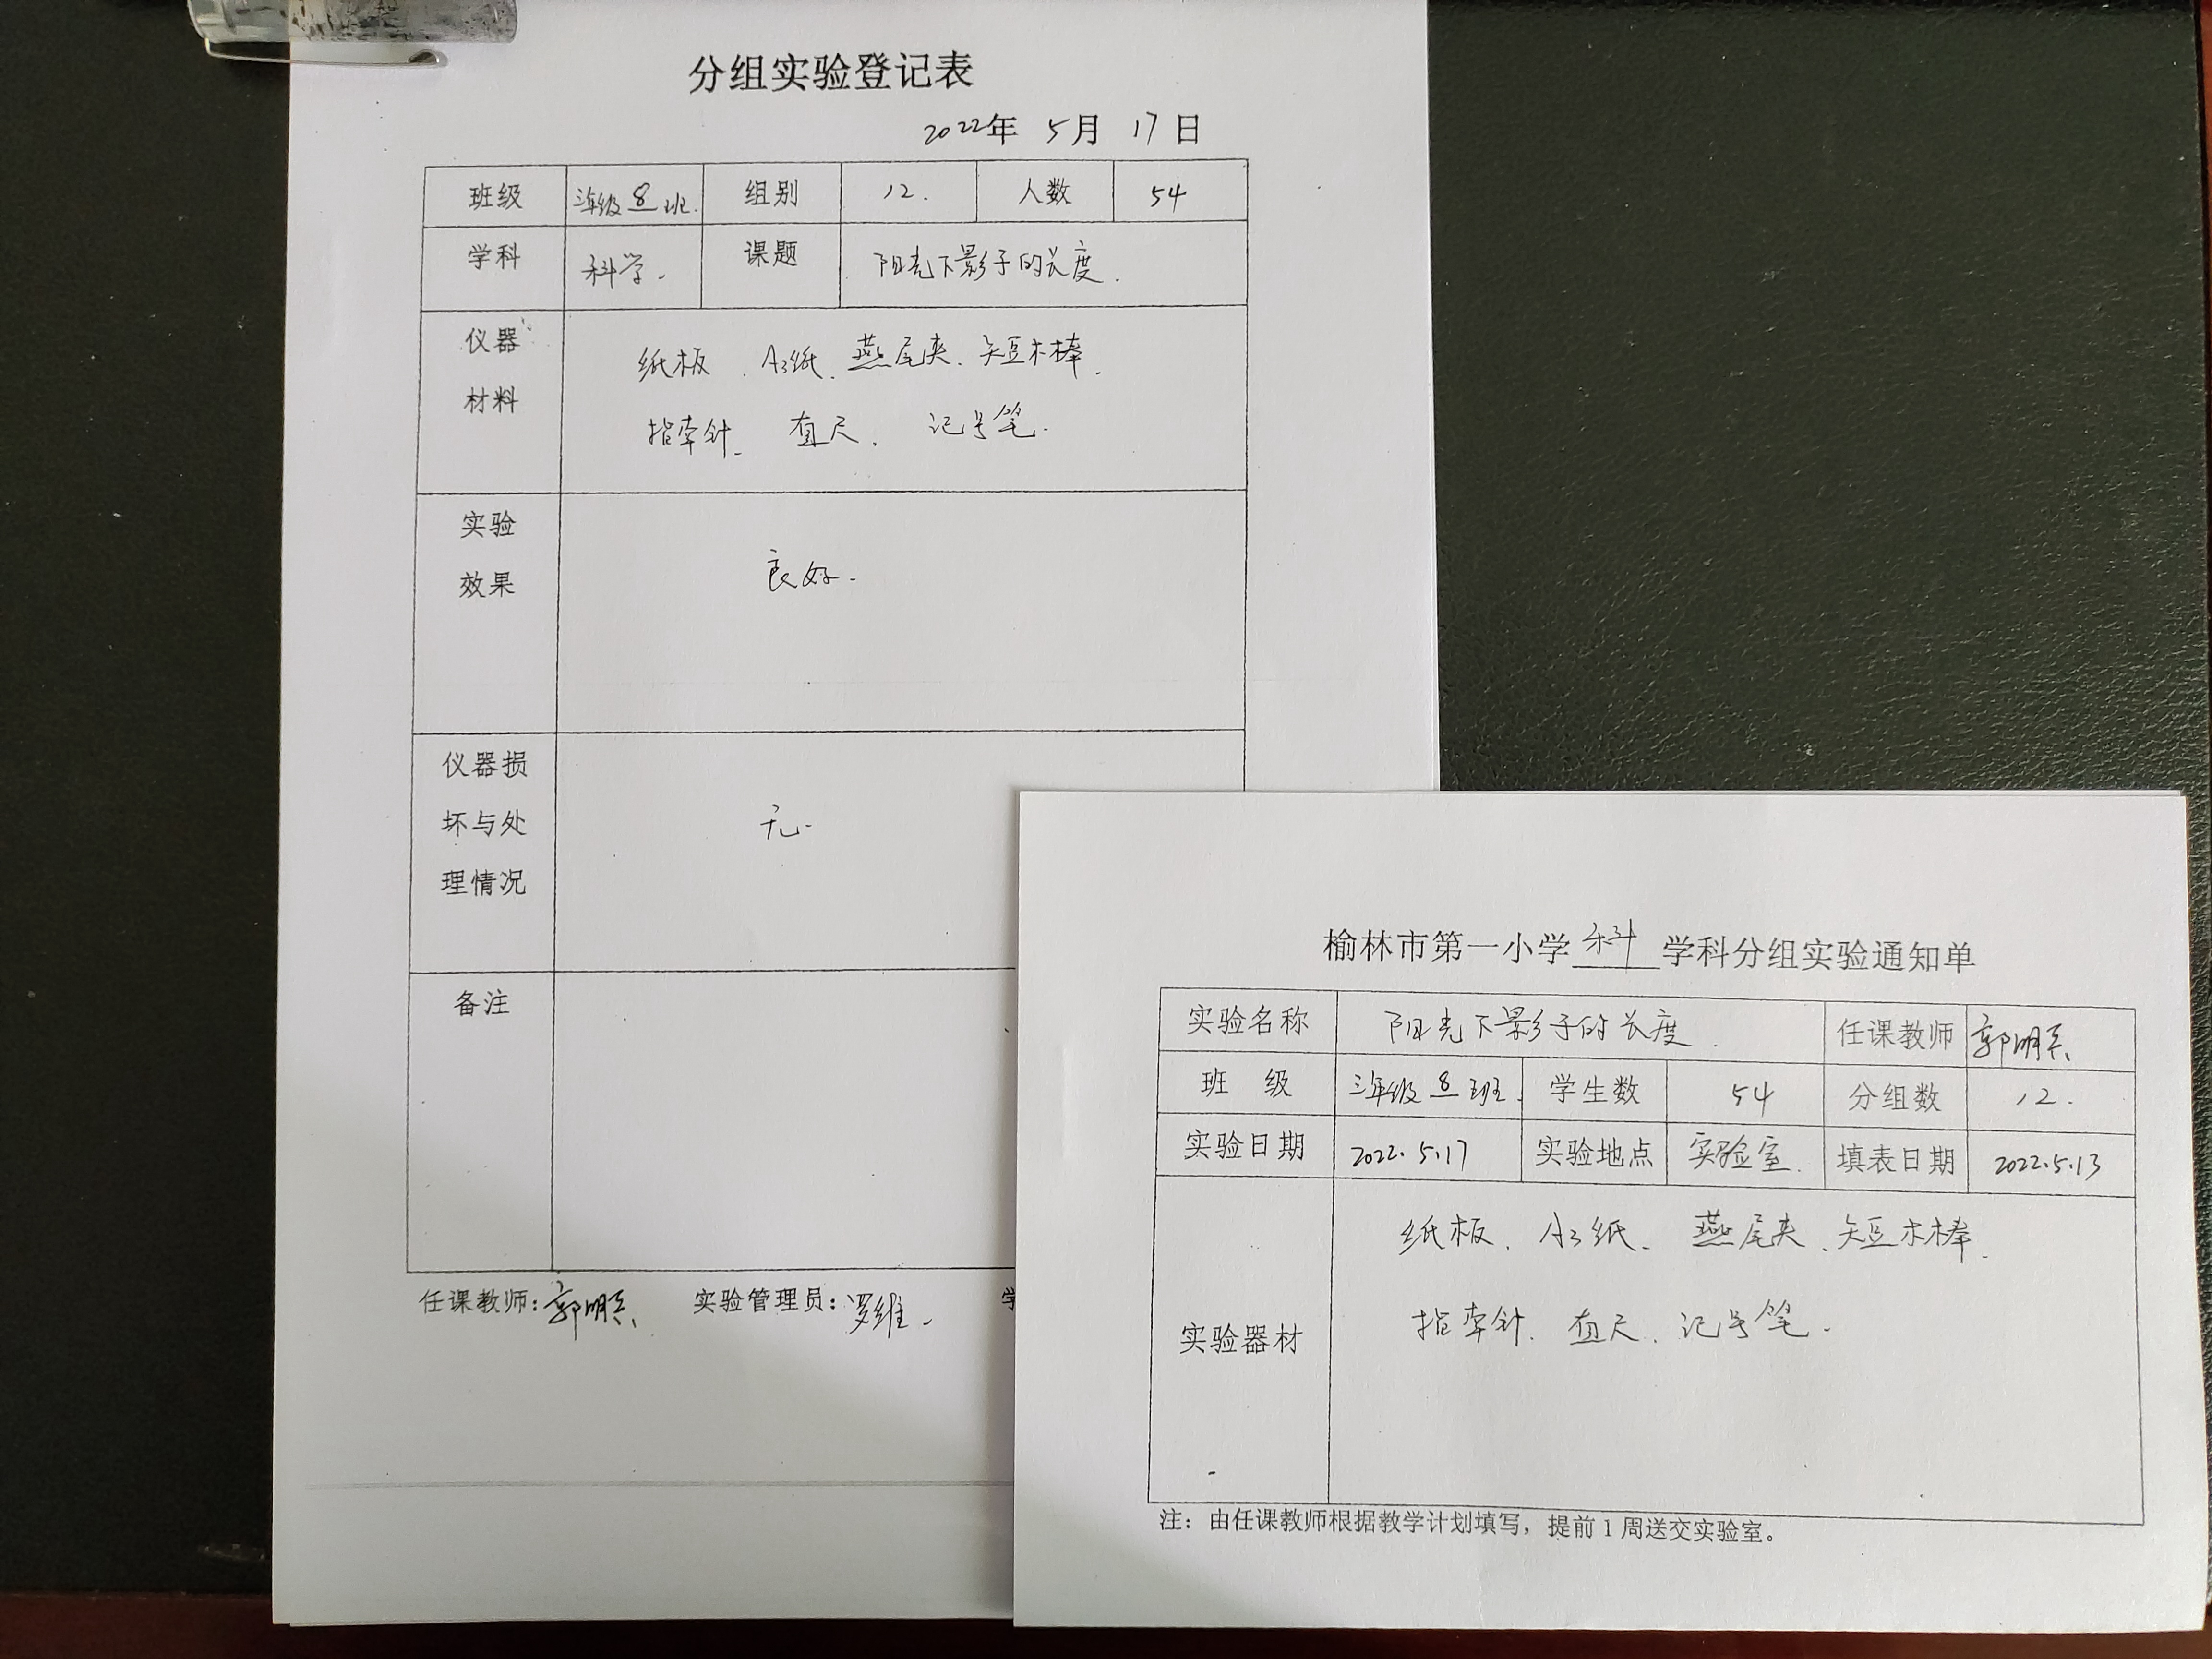 分组实验登记表
2022年 5月 17日
班级 三年级 8 班. 组别 12. 人数 54
学科 科学. 课题 阳光下影子的长度.
仪器材料 纸板、A3纸、燕尾夹、短木棒、
指南针、直尺、记号笔.
实验效果 良好.
仪器损坏与处理情况 无.
备注
任课教师: 郭明 实验管理员: 罗维. 学
榆林市第一小学 科 学科分组实验通知单
实验名称 阳光下影子的长度. 任课教师 郭明
班 级 三年级 8 班. 学生数 54 分组数 12.
实验日期 2022.5.17 实验地点 实验室. 填表日期 2022.5.13
实验器材 纸板、A3纸、燕尾夹、短木棒、
指南针、直尺、记号笔.
注：由任课教师根据教学计划填写，提前1周送交实验室。